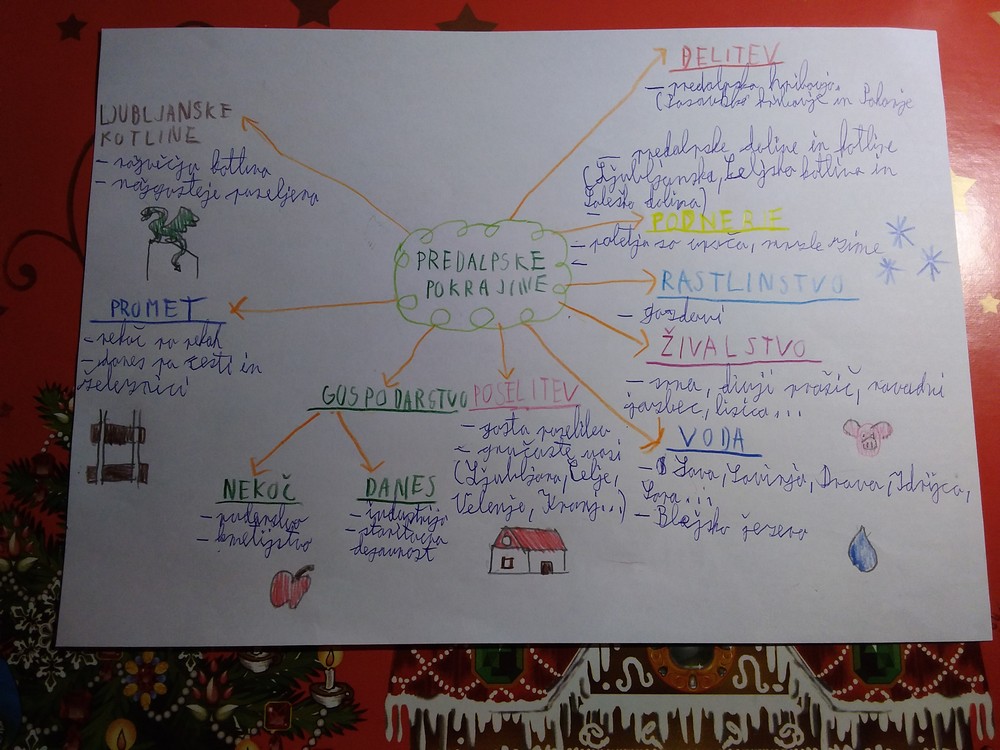 PREDALPSKE
POKRAJINE
DELITEV
- predalpska hribovja
(Zasavsko hribovje in Pohorje
- predalpske doline in kotline
(Ljubljanska, Celjska kotlina in
Šaleška dolina)
-
PODNEBJE
- poletja so vroča, mrzle zime
-
RASTLINSTVO
- gozdovi
ŽIVALSTVO
- srna, divji prašič, navadni
jazbec, lisica...
VODA
- Sava, Savinja, Drava, Idrijca,
Sora...
- Blejsko jezero
POSELITEV
- gosta poselitev
- gručaste vasi
(Ljubljana, Celje,
Velenje, Kranj...)
GOSPODARSTVO
NEKOČ
- rudarstvo
- kmetijstvo
DANES
- industrija
- storitvena
dejavnost
PROMET
- nekoč po rekah
- danes po cesti in
železnici
LJUBLJANSKE
KOTLINE
- največja kotlina
- najgosteje poseljena